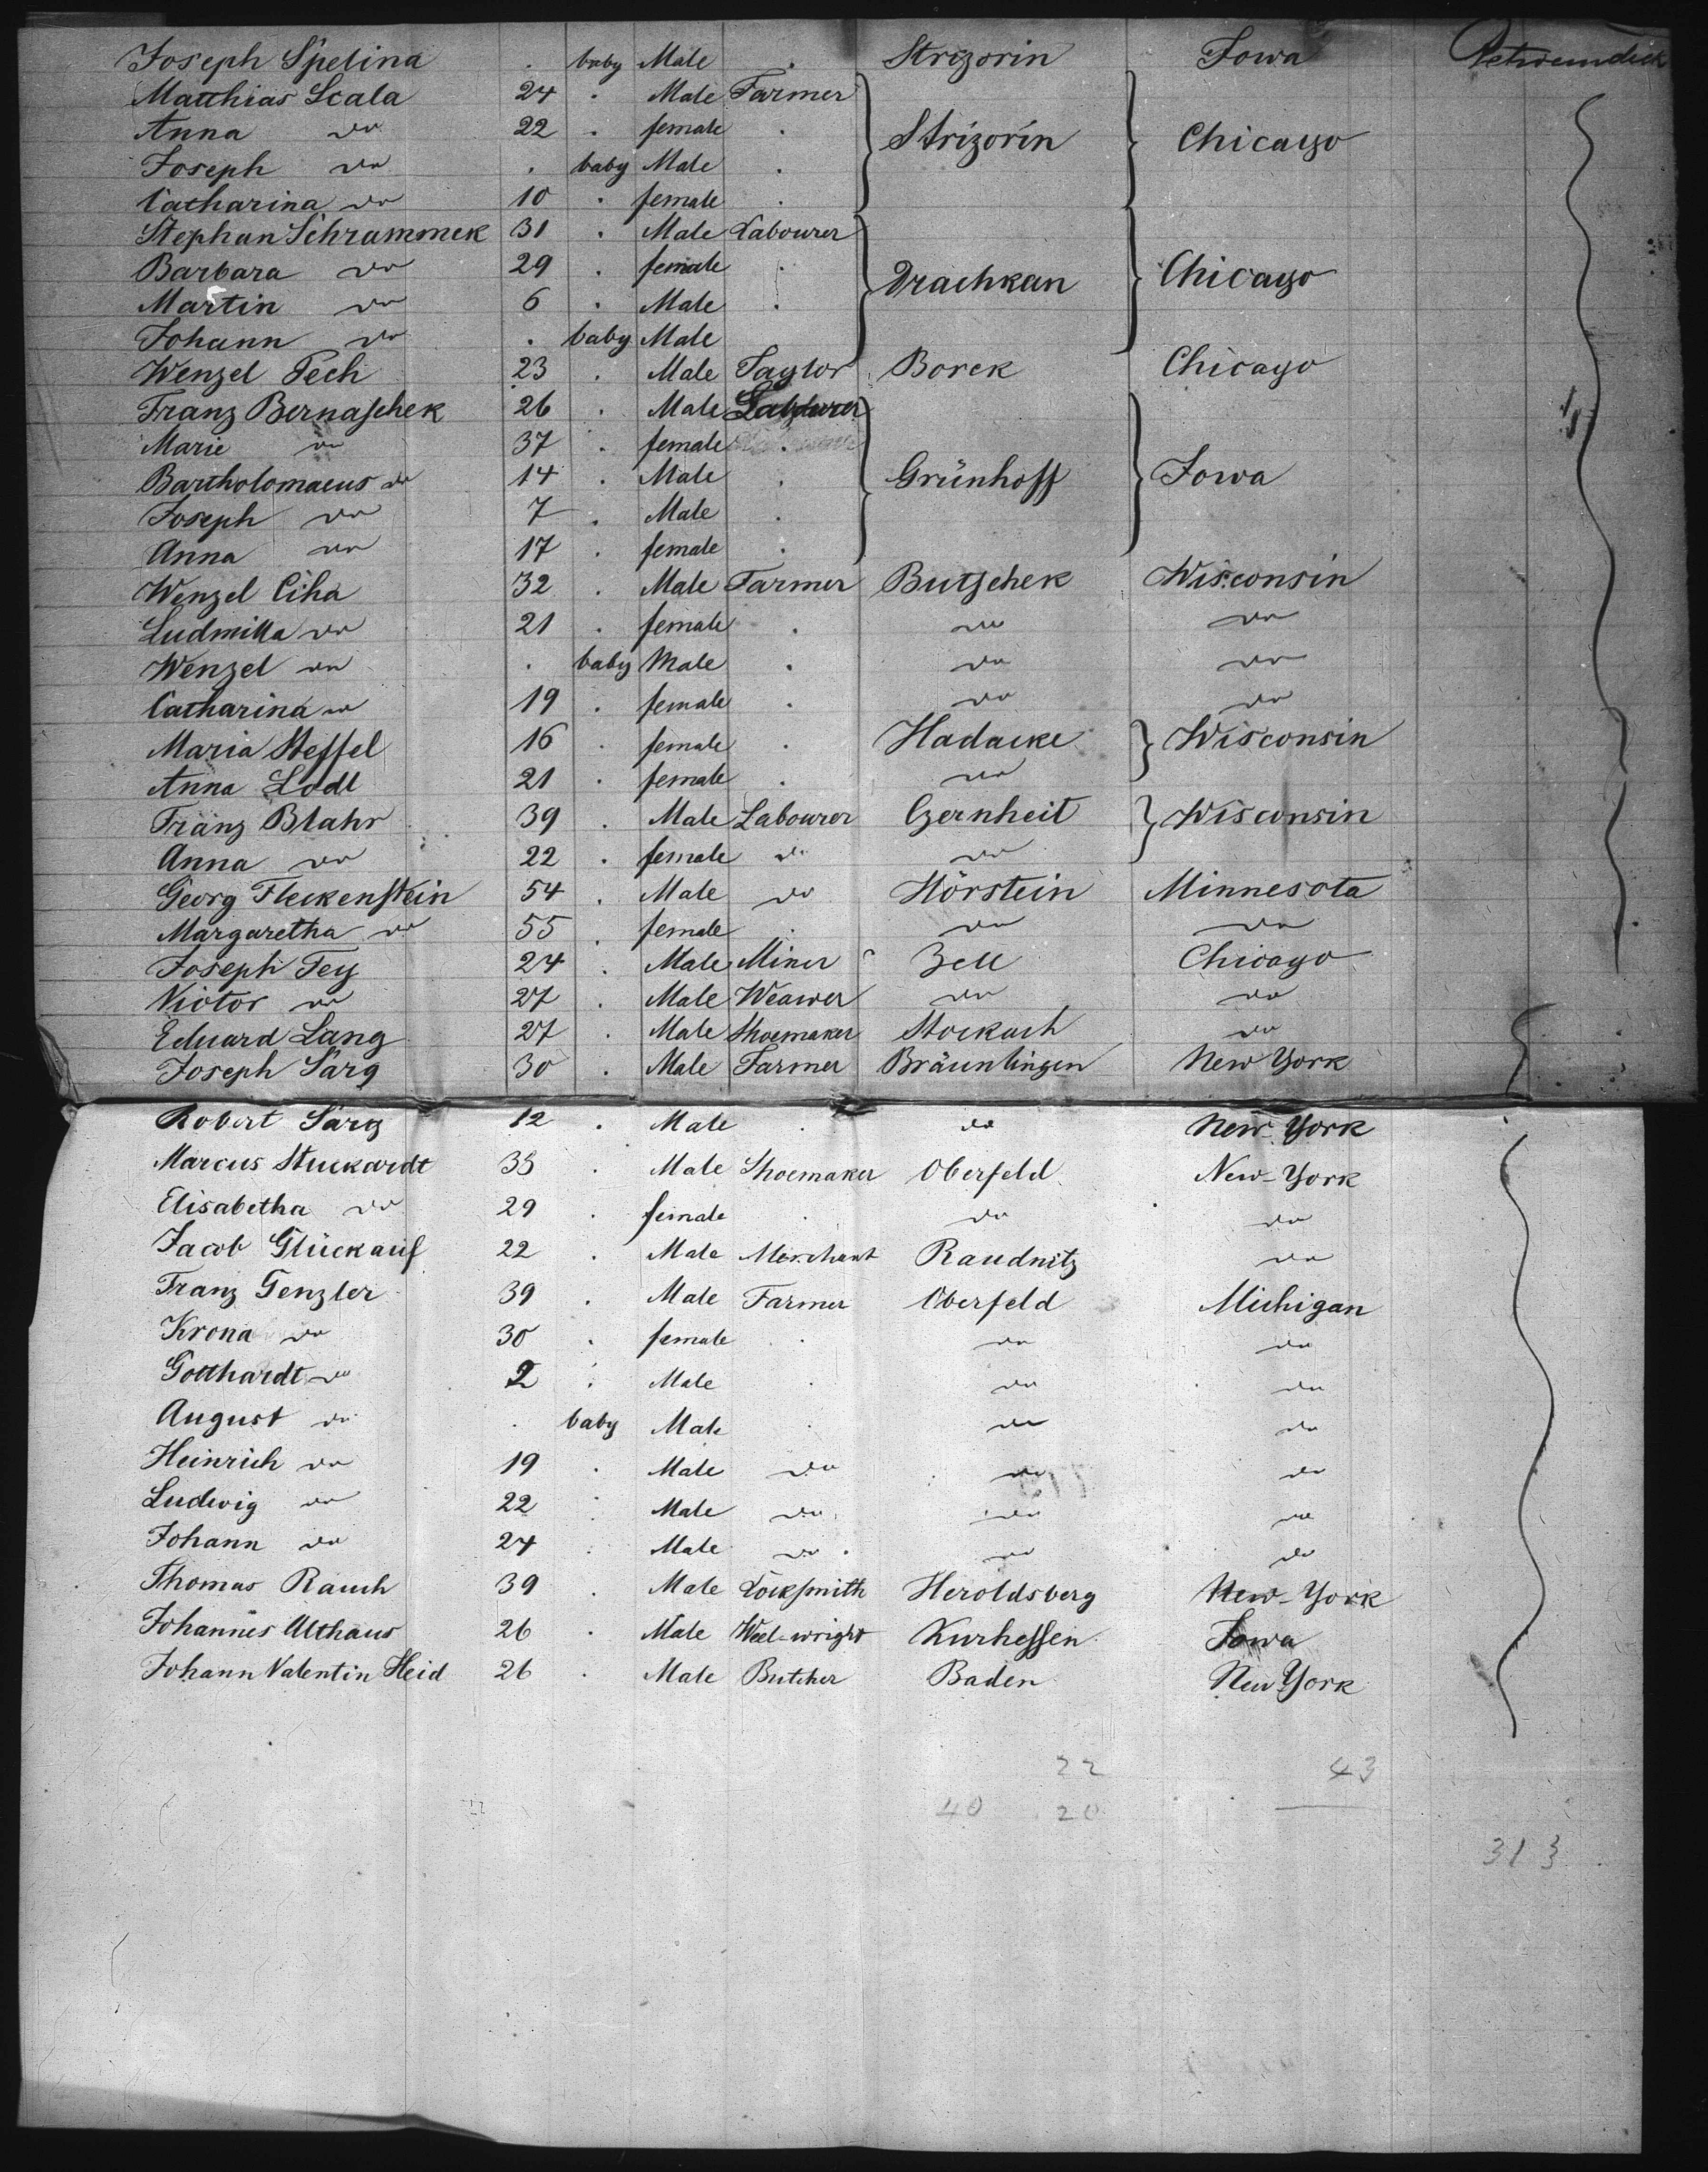 Joseph Spelina . baby Male . Strizorin Iowa
Matthias Scala 24 . Male Farmer
Anna do 22 . female . Strizorin Chicago
Joseph do . baby Male .
Catharina do 10 . female .
Stephan Schrammek 31 . Male Labourer
Barbara do 29 . female . Drachkau Chicago
Martin do 6 . Male .
Johann do . baby Male
Wenzel Pech 23 . Male Taylor Borek Chicago
Franz Bernaschek 26 . Male Labourer
Marie do 37 . female .
Bartholomaeus do 14 . Male . Grünhoff Iowa
Joseph do 7 . Male .
Anna do 17 . female .
Wenzel Ciha 32 . Male Farmer Butschek Wisconsin
Ludmilla do 21 . female . do do
Wenzel do . baby Male . do do
Catharina do 19 . female . do do
Maria Steffel 16 . female . Hadacke Wisconsin
Anna Lodl 21 . female . do
Franz Blahr 39 . Male Labourer Czernheit Wisconsin
Anna do 22 . female do do
Georg Fleckenstein 54 . Male do Hörstein Minnesota
Margaretha do 55 . female . do do
Joseph Fey 24 . Male Miner Zell Chicago
Victor do 27 . Male Weawer do do
Eduard Lang 27 . Male Shoemaker Stockach do
Joseph Sarg 30 . Male Farmer Bräunlingen New York
Robert Sarg 12 . Male . do New-York
Marcus Stuckardt 35 . Male Shoemaker Oberfeld New-York
Elisabetha do 29 . female . do do
Jacob Glückauf 22 . Male Merchant Raudnitz do
Franz Genzler 39 . Male Farmer Oberfeld Michigan
Krona do 30 . female . do do
Gotthardt do 2 . Male . do do
August do . baby Male . do do
Heinrich do 19 . Male do do do
Ludwig do 22 . Male do do do
Johann do 24 . Male do do do
Thomas Rauch 39 . Male Locksmith Heroldsberg New-York
Johannes Althaus 26 . Male Weel-wright Kurhessen Iowa
Johann Valentin Heid 26 . Male Butcher Baden New York
22 43
40 20
313